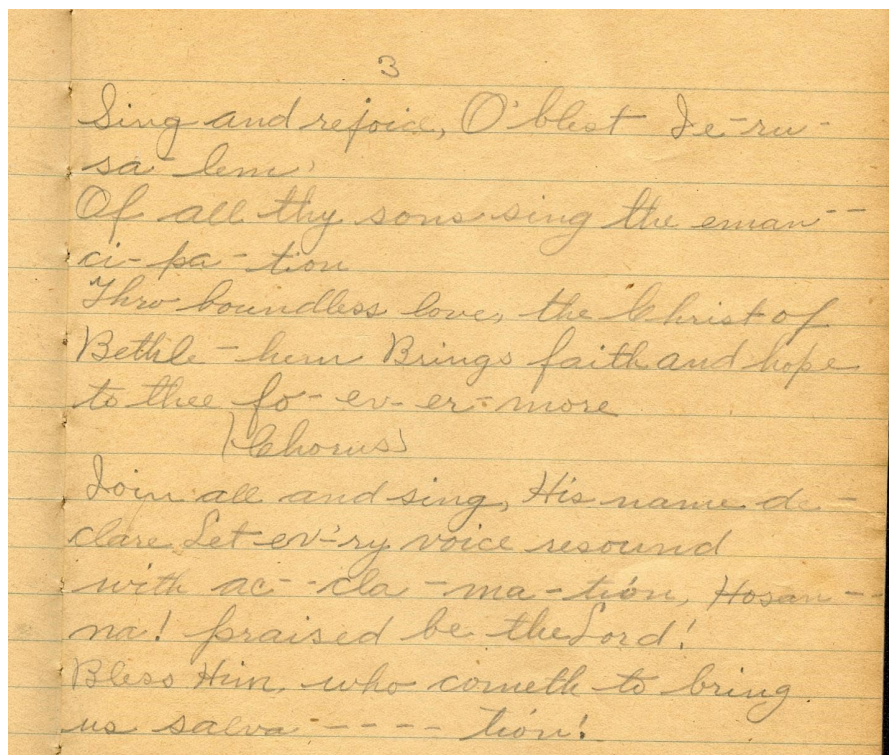 3
Sing and rejoice, O' blest Je-ru-
sa-lem,
Of all thy sons sing the eman--
ci-pa-tion
Thro boundless love, the Christ of
Bethle-hem Brings faith and hope
to thee fo-ev-er-more
(Chorus)
Join all and sing, His name de-
clare Let ev'-ry voice resound
with ac--cla-ma-tion, Hosan--
na! praised be the Lord!
Bless Him, who cometh to bring
us salva----tion!